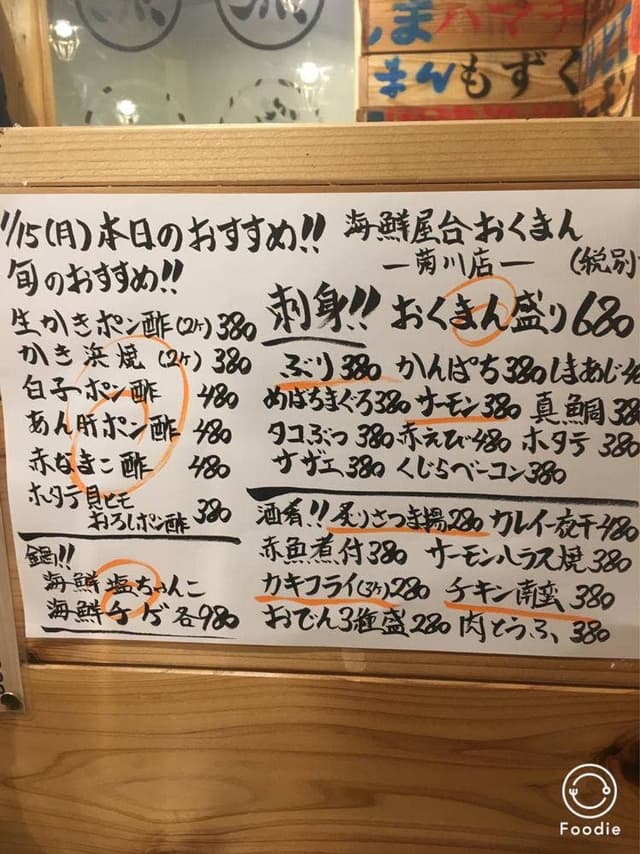 まハマチ
まんもずく
1/15(月)本日のおすすめ!!
海鮮屋台おくまん
ー菊川店ー
(税別)
旬のおすすめ!!
生かきポン酢(2ヶ) 380
かき浜焼(2ヶ) 380
白子ポン酢 480
あん肝ポン酢 480
赤なまこ酢 480
ホタテ貝ヒモ
おろしポン酢 380
鍋!!
海鮮塩ちゃんこ
海鮮チゲ各980
刺身!! おくまん盛り680
ぶり380 かんぱち380 しまあじ4
めばちまぐろ380 サーモン380 真鯛38
タコぶつ380 赤えび480 ホタテ380
サザエ380 くじらベーコン380
酒肴!! 炙りさつま揚280 カレイ一夜干480
赤魚煮付380 サーモンハラス焼380
カキフライ(3ヶ)280 チキン南蛮380
おでん3種盛280 肉とうふ、380
Foodie